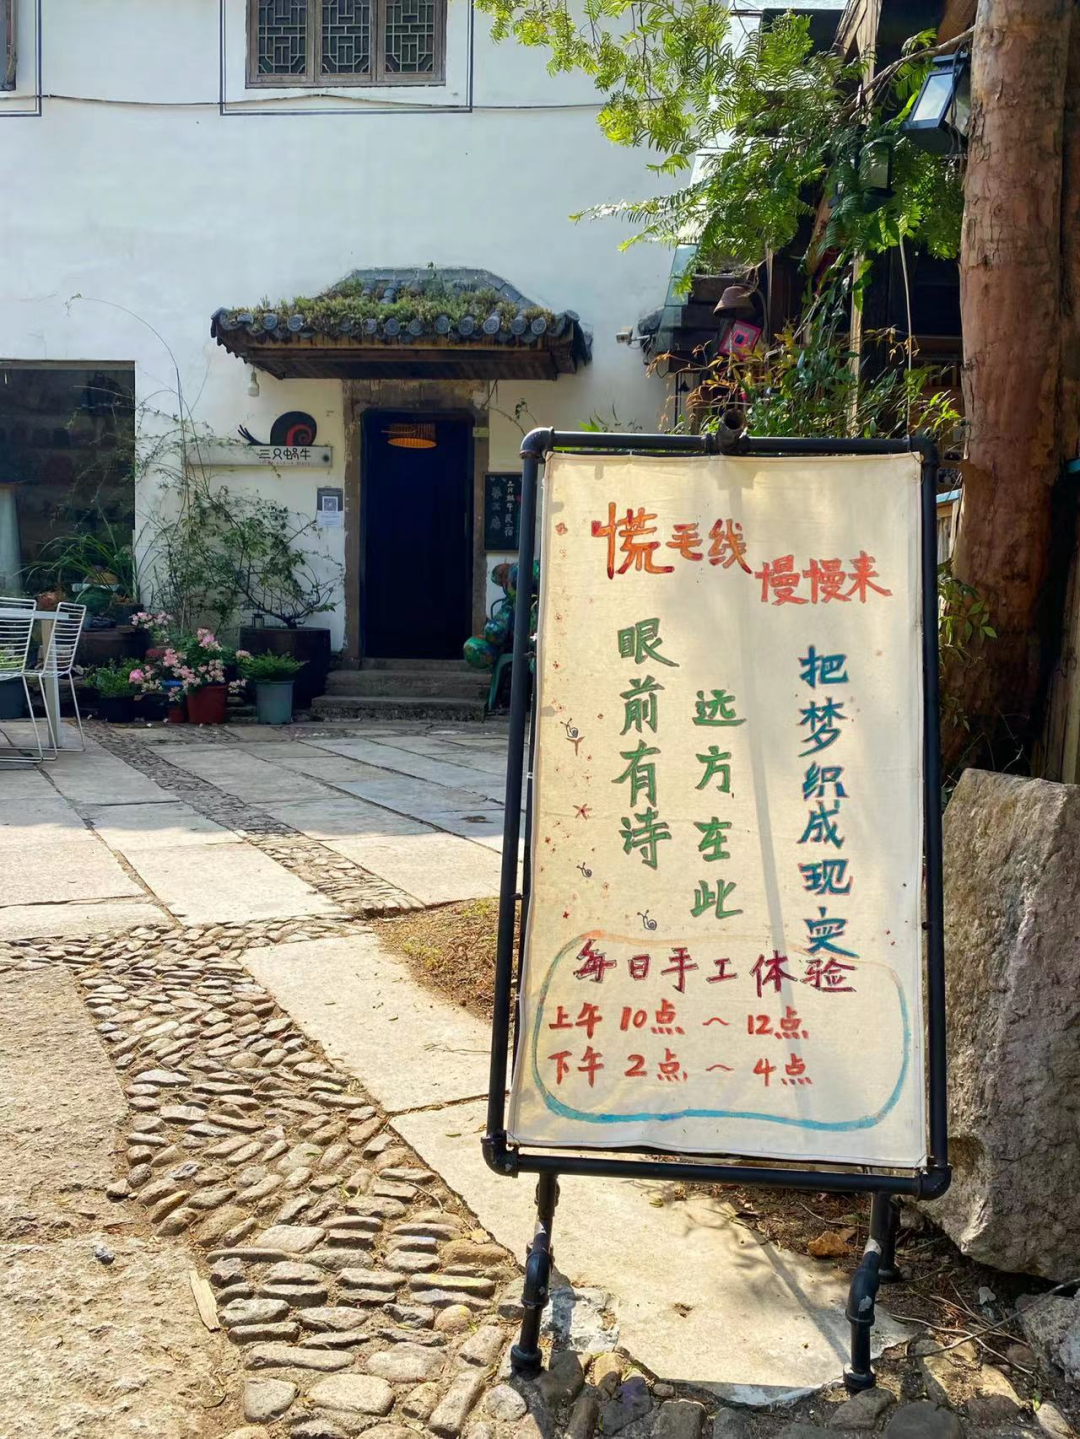 三只蜗牛
慌毛线
慢慢来
眼前有诗
远方在此
把梦织成现实
每日手工体验
上午10点～12点
下午2点～4点